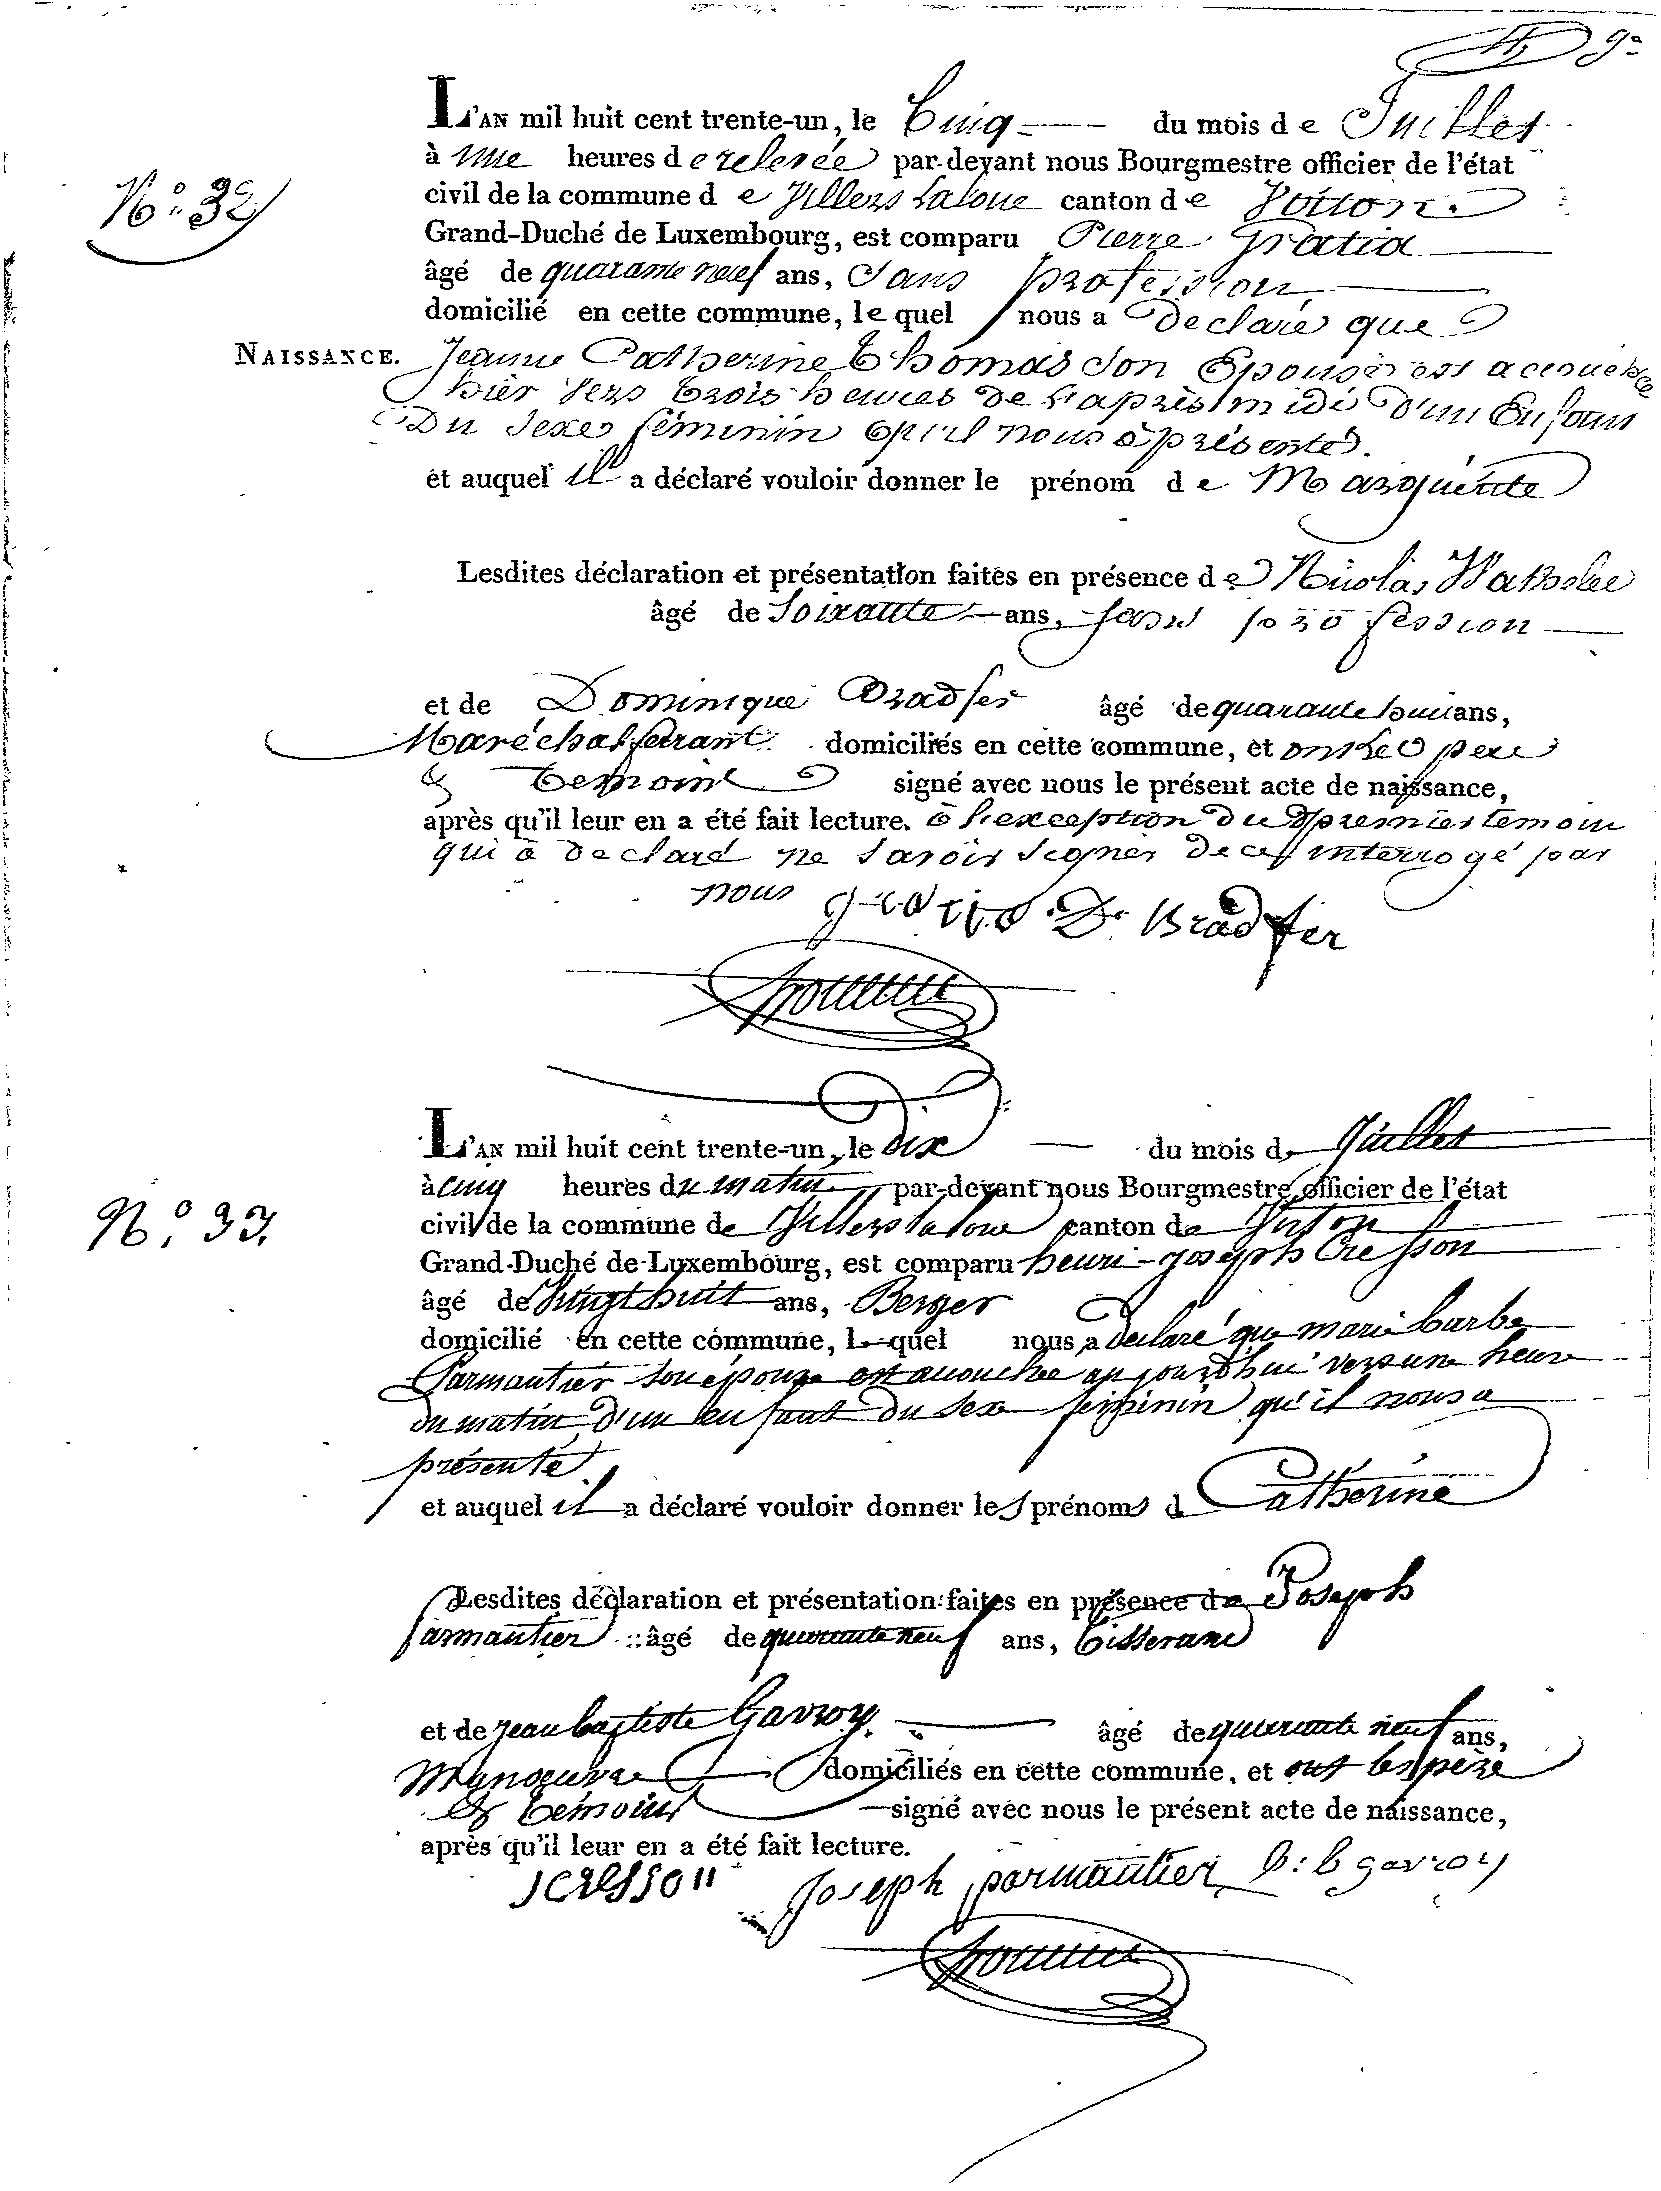 9e
L'AN mil huit cent trente-un, le Cinq du mois de Juillet
à une heures de relevée par-devant nous Bourgmestre officier de l'état
N.o 32
civil de la commune de Villers Laloue canton de Virton.
Grand-Duché de Luxembourg, est comparu Pierre Gratia
âgé de quarante neuf ans, Sans profession
domicilié en cette commune, lequel nous a declaré que
NAISSANCE. Jeanne Catherine Thomas Son Epouse est accouchée
hier vers trois heures de l'après midi d'un Enfant
Du Sexe féminin qu'il nous à présenté.
et auquel il a déclaré vouloir donner le prénom de Marguerite
Lesdites déclaration et présentation faites en présence de Nicolas
âgé de Soixante ans, sans profession
et de Dominique Bradfer âgé de quarante huit ans,
Maréchal ferrant domiciliés en cette commune, et ont les pere
& temoins signé avec nous le présent acte de naissance,
après qu'il leur en a été fait lecture. à l'exception du premier temoin
qui à declaré ne savoir signer de ce interrogé par
nous
gratia D. Bradfer
L'AN mil huit cent trente-un, le dix du mois de Juillet
à cinq heures du matin par-devant nous Bourgmestre officier de l'état
N.o 33.
civil de la commune de Villers laloue canton de Virton
Grand-Duché de Luxembourg, est comparu henri-joseph Cresson
âgé de Vingt huit ans, Berger
domicilié en cette commune, lequel nous a declaré que marie barbe
Parmantier son épouse est accouchée aujourdhui vers une heure
du matin d'un enfant du sexe féminin qu'il nous a
présenté
et auquel il a déclaré vouloir donner les prénoms d Catherine
Lesdites déclaration et présentation faites en présence de Joseph
parmantier âgé de quarante neuf ans, tisserand
et de jean baptiste Gavroy. âgé de quarante neuf ans,
Manoeuvre domiciliés en cette commune, et ont les père
& témoins signé avec nous le présent acte de naissance,
après qu'il leur en a été fait lecture.
J cresson joseph parmantier b: b gavroy